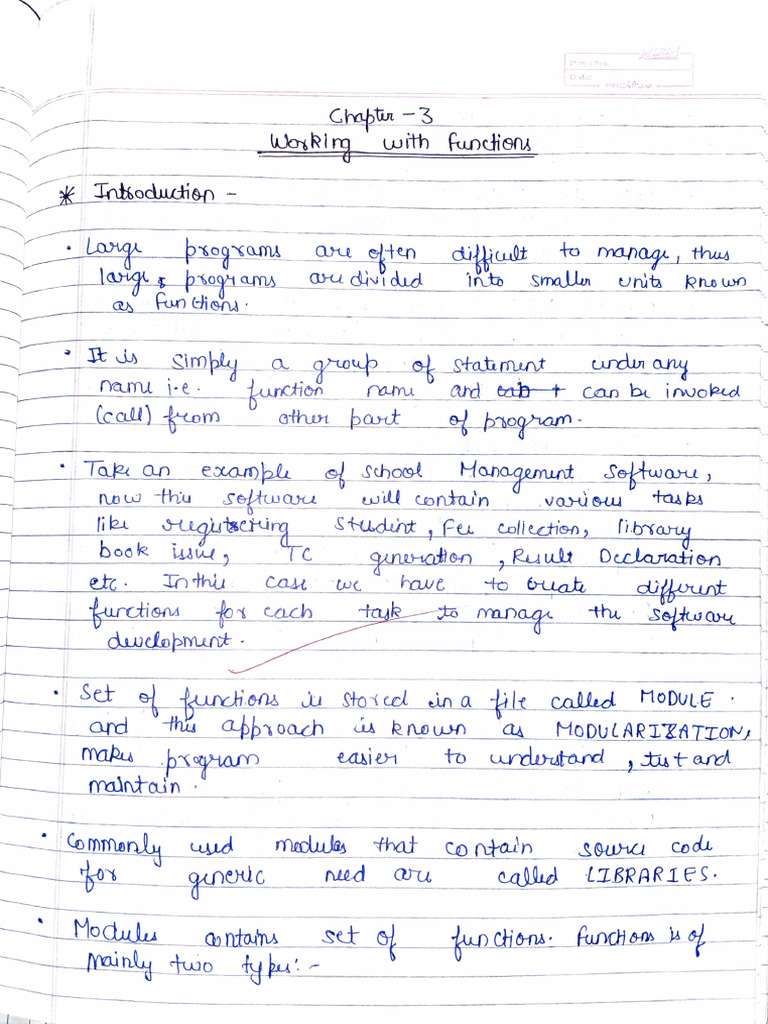 Page No.
Date
Chapter - 3
Working with functions
* Introduction -
• Large programs are often difficult to manage, thus
large programs are divided into smaller units known
as functions.
• It is simply a group of statement under any
name i.e. function name and can be invoked
(call) from other part of program.
• Take an example of school Management software,
now this software will contain various tasks
like registering student, fee collection, library
book issue, TC generation, Result Declaration
etc. In this case we have to create different
functions for each task to manage the software
development.
• Set of functions is stored in a file called MODULE.
and this approach is known as MODULARIZATION,
makes program easier to understand, test and
maintain.
• Commonly used modules that contain source code
for generic need are called LIBRARIES.
• Modules contains set of functions. Functions is of
mainly two types:-